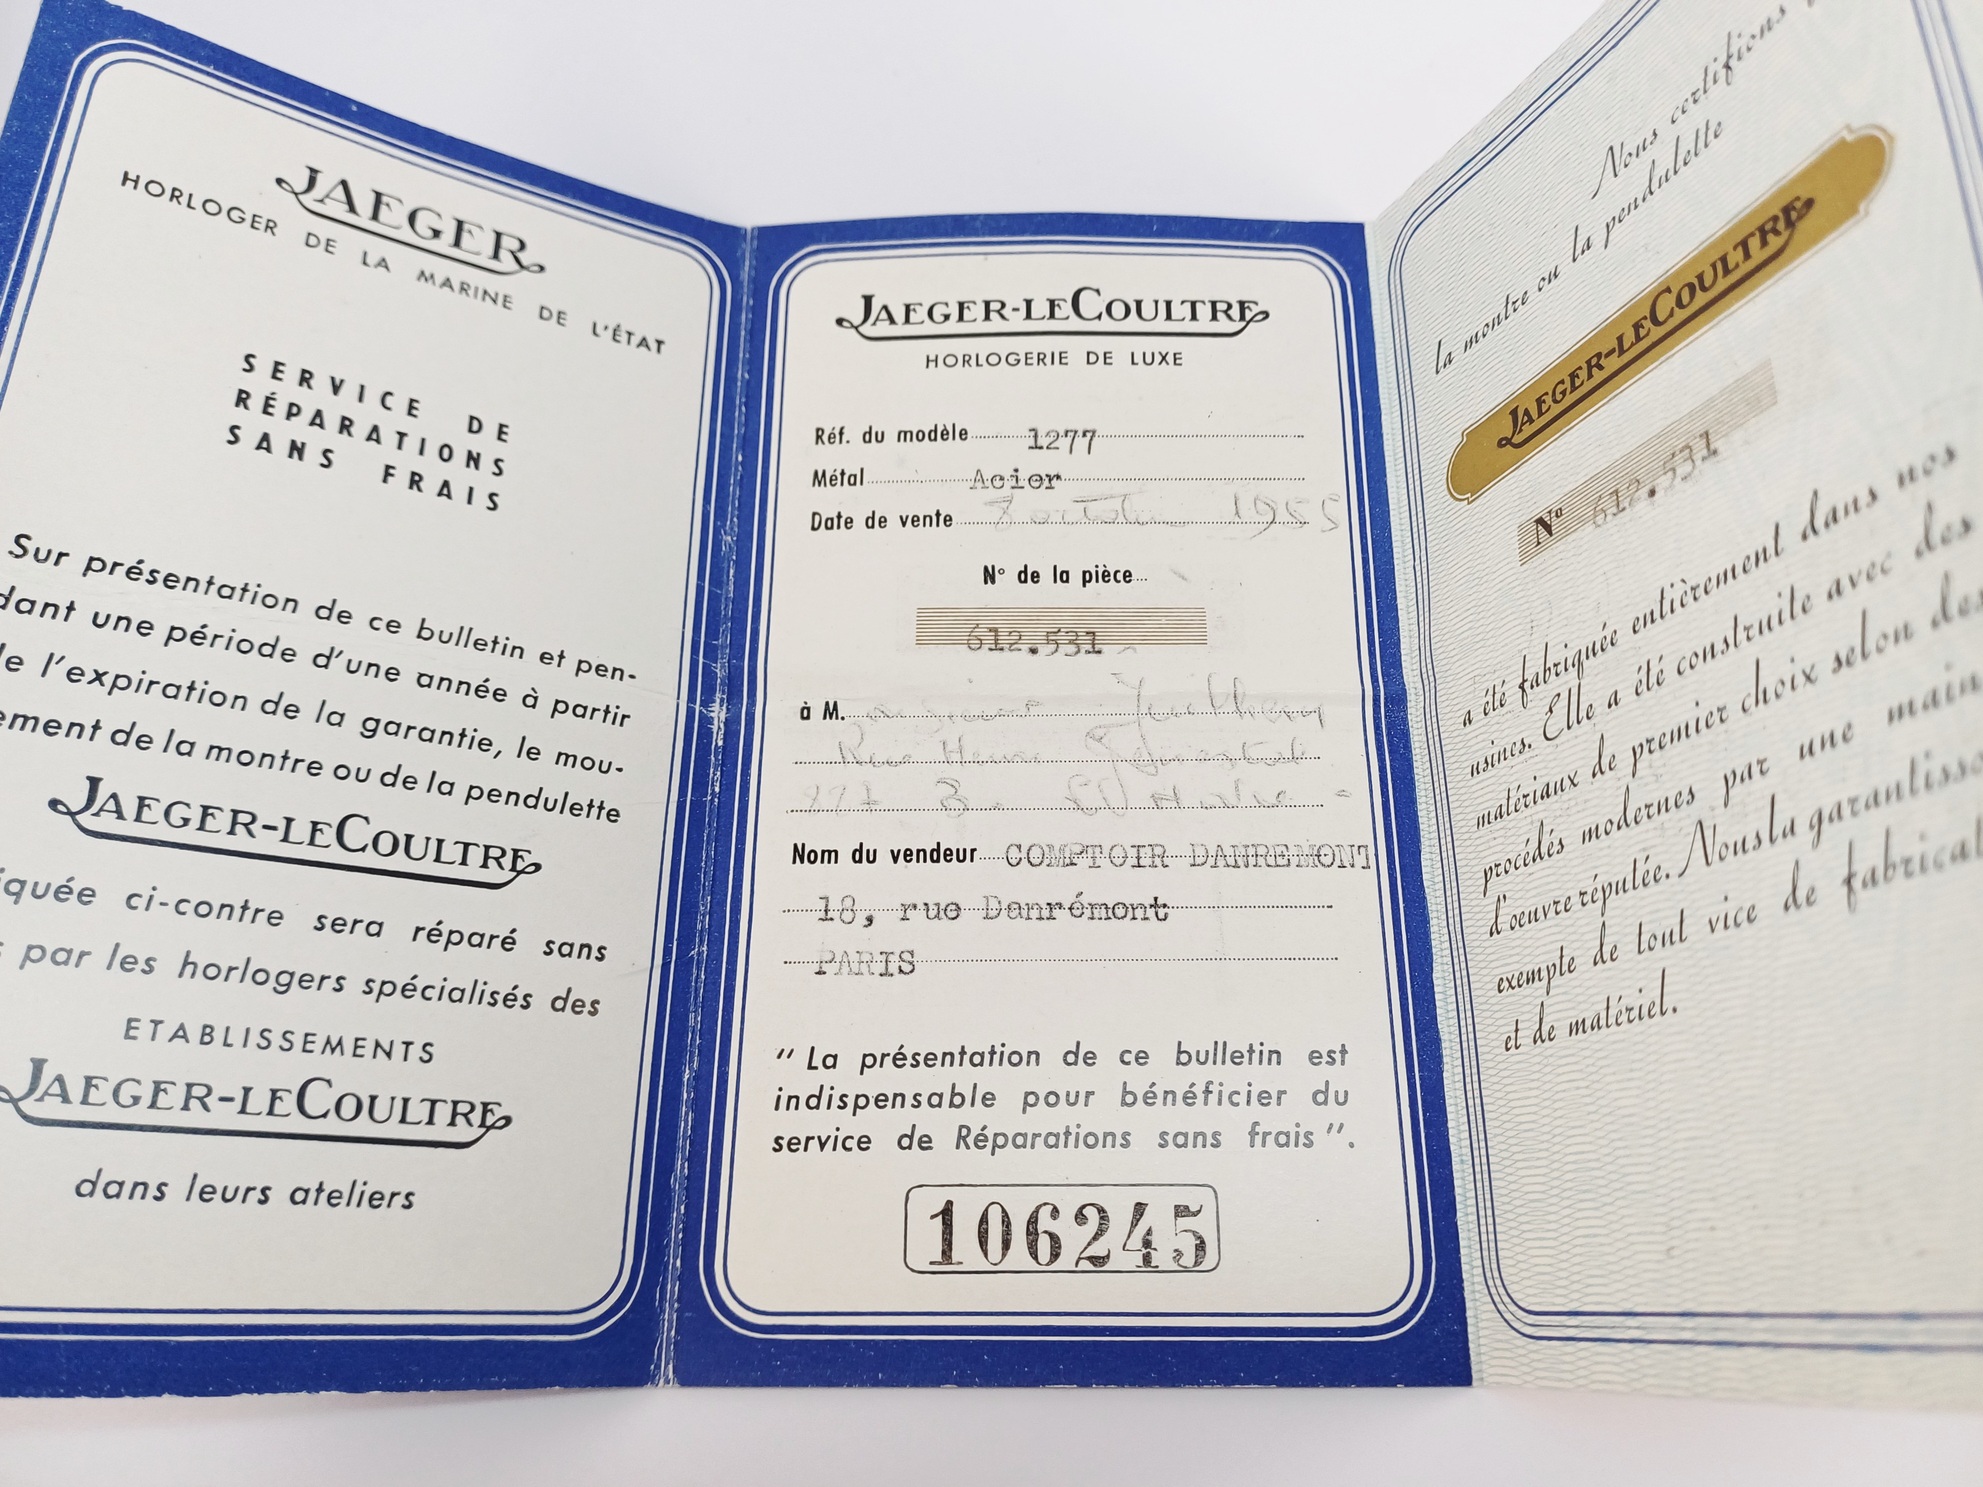 JAEGER
HORLOGER DE LA MARINE DE L'ÉTAT
SERVICE DE
RÉPARATIONS
SANS FRAIS
Sur présentation de ce bulletin et pen-
dant une période d'une année à partir
de l'expiration de la garantie, le mou-
ement de la montre ou de la pendulette
JAEGER-LECOULTRE
quée ci-contre sera réparé sans
par les horlogers spécialisés des
ETABLISSEMENTS
JAEGER-LECOULTRE
dans leurs ateliers
JAEGER-LECOULTRE
HORLOGERIE DE LUXE
Réf. du modèle 1277
Métal Acier
Date de vente 8 octobre 1955
N° de la pièce
612.531
à M.
Rue Henri
Nom du vendeur COMPTOIR DANREMONT
18, rue Danrémont
PARIS
" La présentation de ce bulletin est
indispensable pour bénéficier du
service de Réparations sans frais ".
106245
Nous certifions
la montre ou la pendulette
JAEGER-LECOULTRE
N° 612.531
a été fabriquée entièrement dans nos
usines. Elle a été construite avec des
matériaux de premier choix selon des
procédés modernes par une main
d'oeuvre réputée. Nous la garantisso
exempte de tout vice de fabricat
et de matériel.